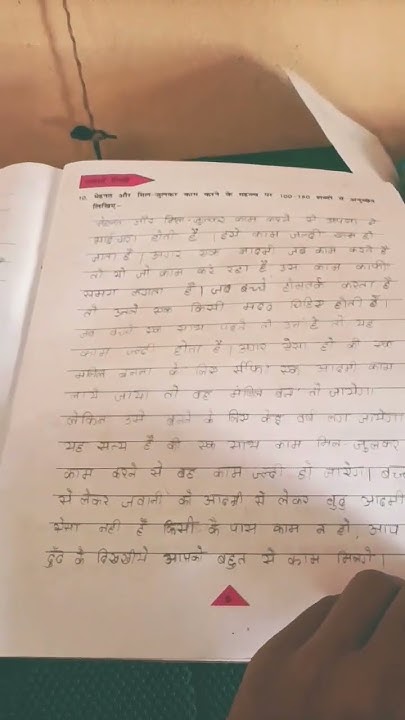 10. मेहनत और मिल-जुलकर काम करने के महत्त्व पर 100-150 शब्दों में अनुच्छेद
लिखिए-
मेहनत और मिल-जुलकर काम करने से आपस मे
भाईचारा होती है । इसे काम जल्दी खत्म हो
जाता है । अगर एक आदमी जब काम करते है
तो वो जो काम कर रहा है उस काम काफी
समय लगता है । जब बच्चे होमवर्क करता है
तो उनसे एक किसी मदद होती है ।
एक साथ पढ़ते तो उन है तो यह
काम जल्दी होता है । अगर ऐसा हो की एक
मंजिल बनाना के लिए सिर्फ एक आदमी काम
लाये जाया तो वह मंजिल बन तो जायेगा
लेकिन उसे बनने के लिए केइ वर्ष लग जायेगा
यह सत्य है की एक साथ काम मिल-जुलकर
काम करने से वह काम जल्दी हो जायेगा । बच्चे
से लेकर जवानी की आदमी से लेकर बुढ़ आदमी
ऐसा नही है किसी के पास काम न हो, आप
ढुँढ के आपको बहुत से काम मिलगे ।